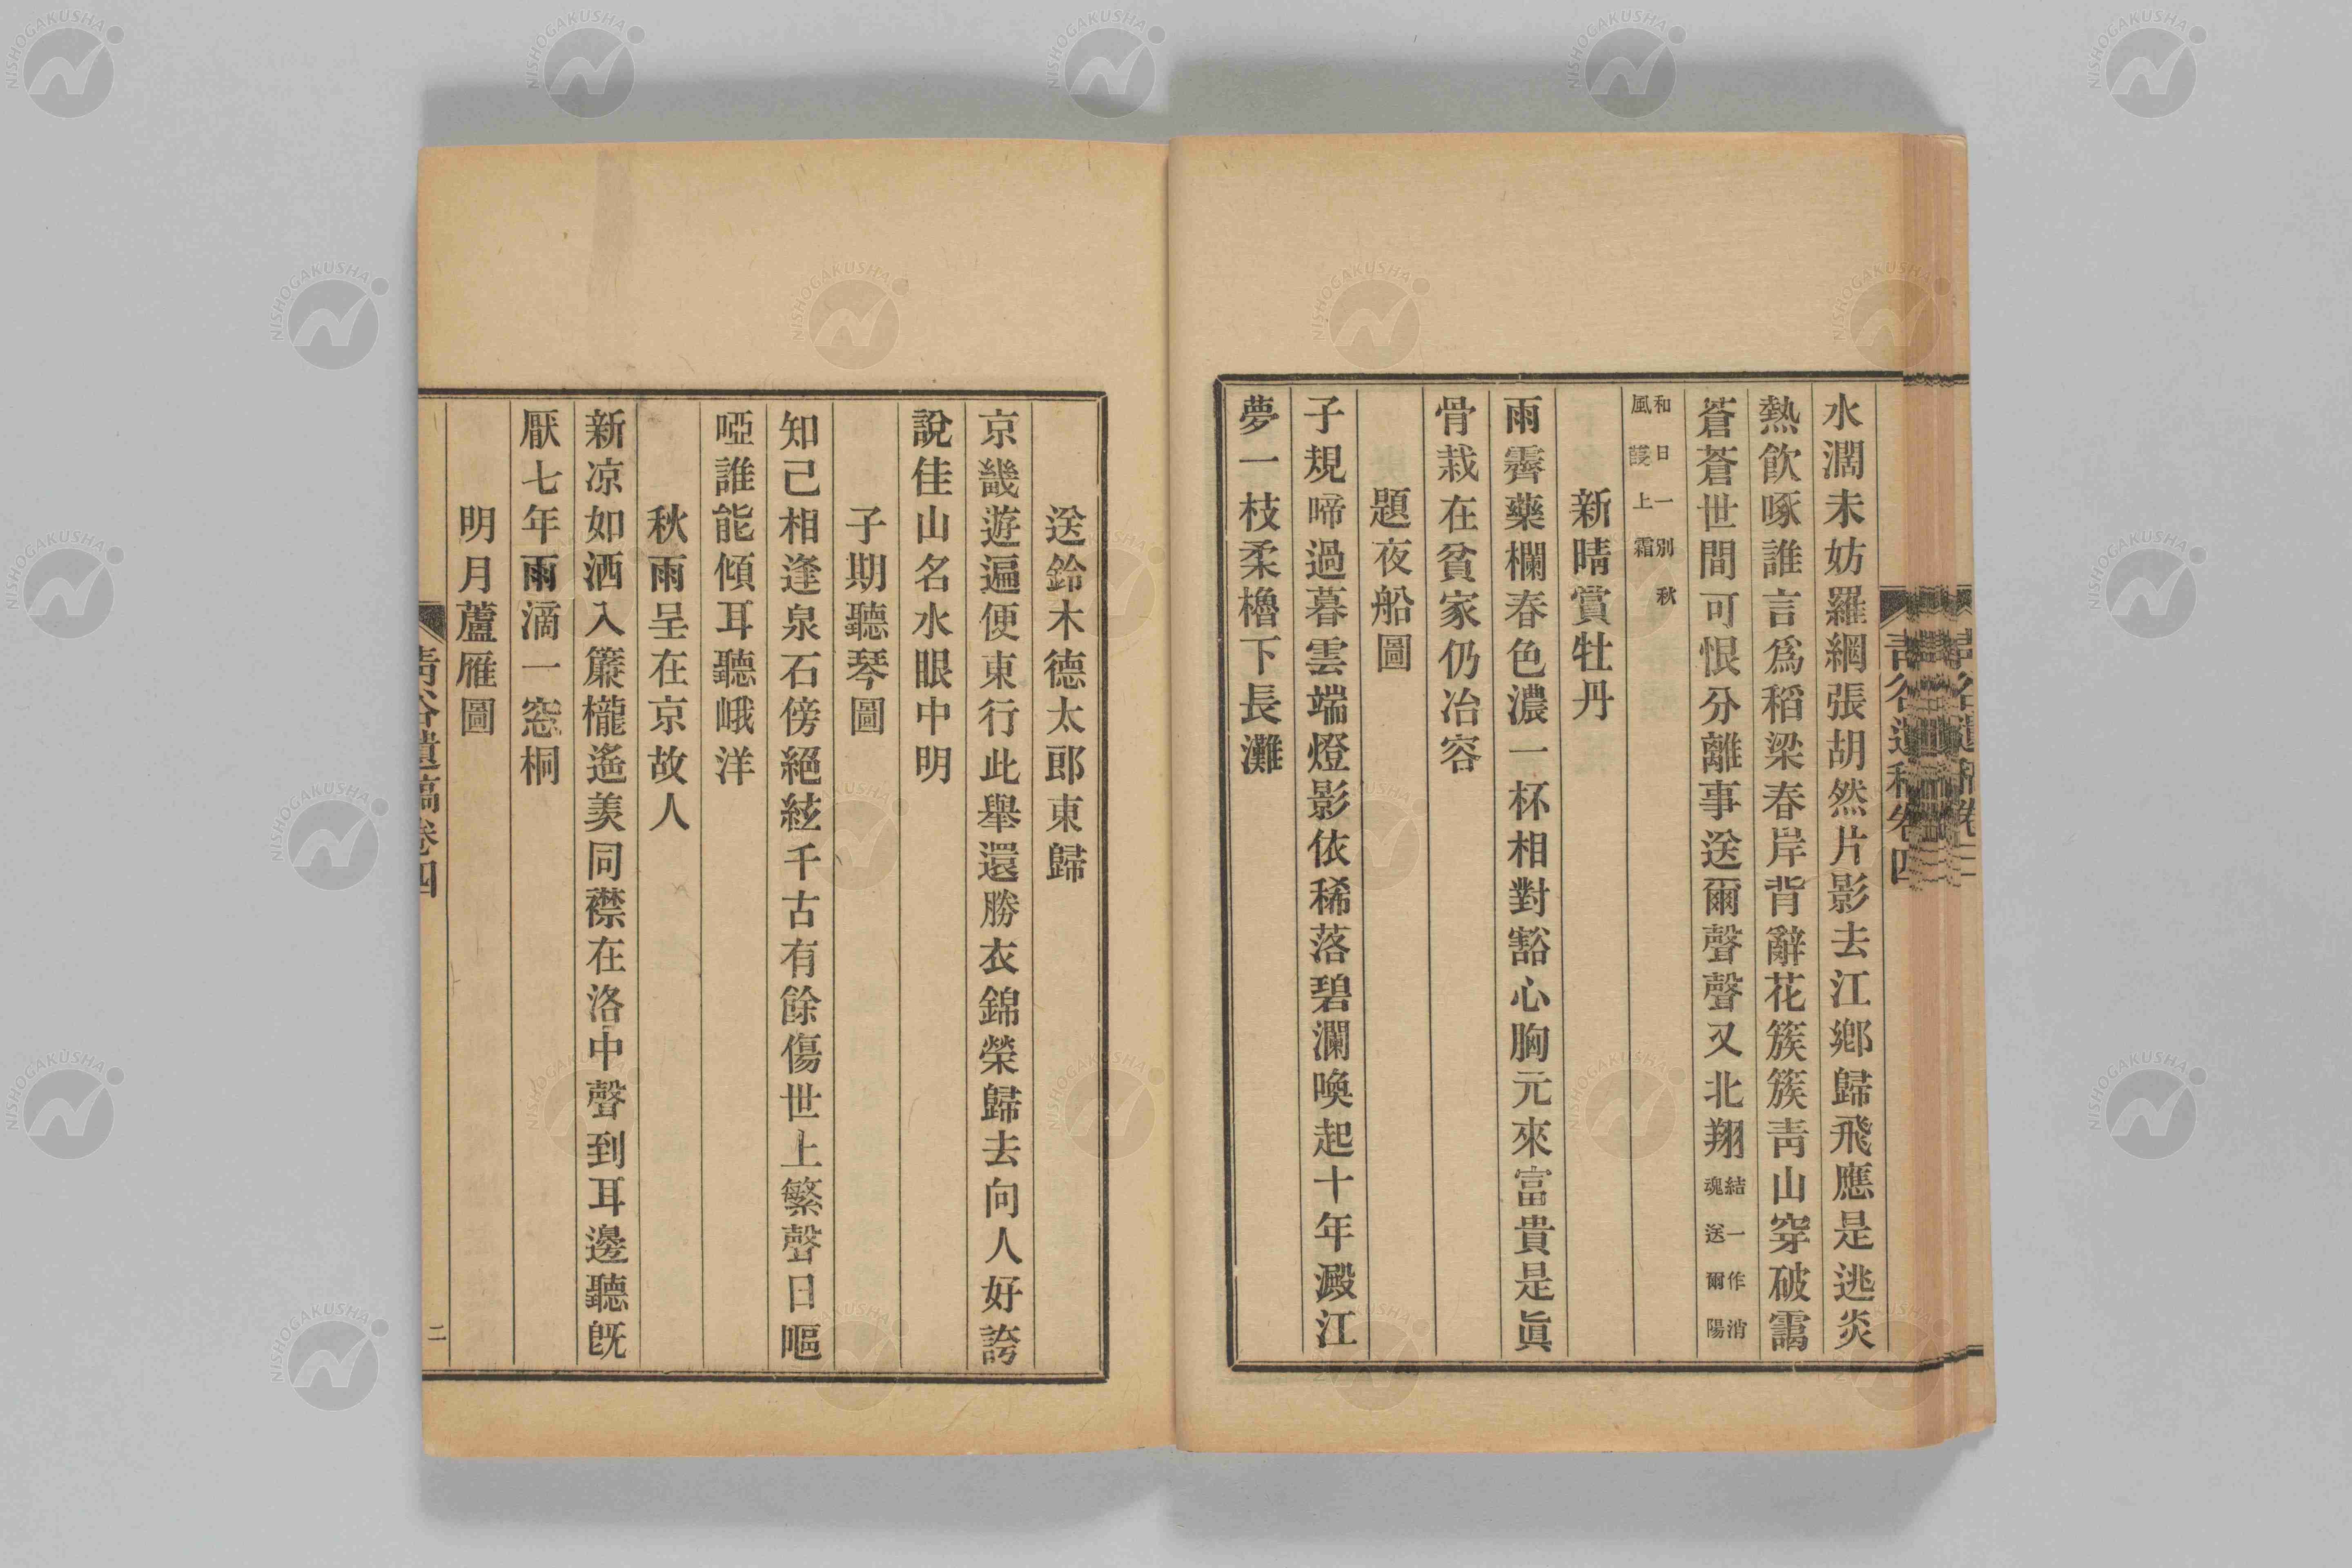 水濶未妨羅網張胡然片影去江鄉歸飛應是逃炎
熱飮啄誰言爲稻梁春岸背辭花簇簇靑山穿破靄
蒼蒼世間可恨分離事送爾聲聲又北翔結一作消
魂送爾陽
和日一別秋
風護上霜
新晴賞牡丹
雨霽藥欄春色濃一杯相對豁心胸元來富貴是眞
骨栽在貧家仍冶容
題夜船圖
子規啼過暮雲端燈影依稀落碧瀾喚起十年澱江
夢一枝柔櫓下長灘
送鈴木德太郎東歸
京畿遊遍便東行此擧還勝衣錦榮歸去向人好誇
說佳山名水眼中明
子期聽琴圖
知己相逢泉石傍絕絃千古有餘傷世上繁聲日嘔
啞誰能傾耳聽峨洋
秋雨呈在京故人
新凉如洒入簾櫳遙羨同襟在洛中聲到耳邊聽旣
厭七年雨滴一窓桐
明月蘆雁圖
靑谷遺稿卷四
二
NISHOGAKUSHA